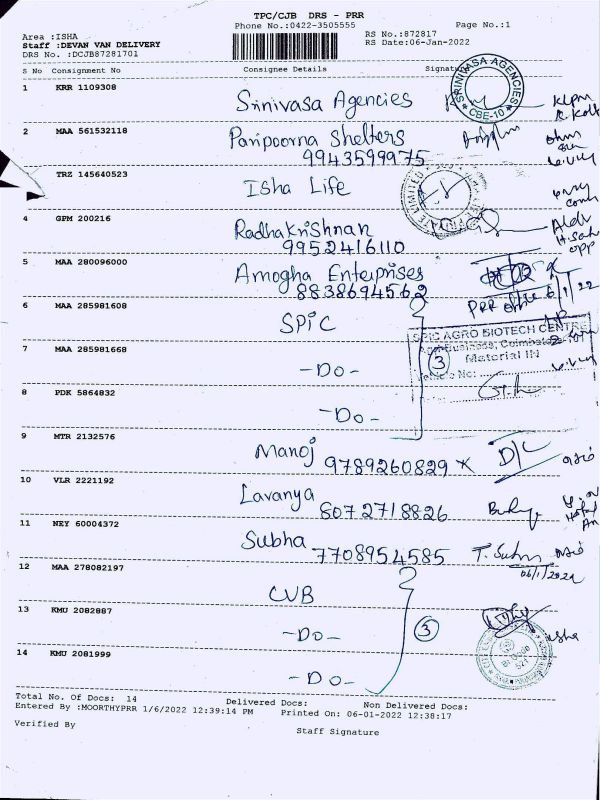 TPC/CJB DRS - PRR
Phone No.:0422-3505555 Page No.:1
Area :ISHA RS No.:872817
Staff :DEVAN VAN DELIVERY RS Date:06-Jan-2022
DRS No. :DCJB87281701
S No Consignment No Consignee Details Signatu
1 KRR 1109308 Srinivasa Agencies
SRINIVASA AGENCIES
* CBE-10 *
2 MAA 561532118 Paripoorna Shelters
9943599975
TRZ 145640523 Isha Life
PRIVATE LIMITED
4 GPM 200216 Radhakrishnan
9952416110
5 MAA 280096000 Amogha Enterprises
8838694562
PRR office 6/1/22
6 MAA 285981608 SPIC
SPIC AGRO BIOTECH CENTRE
7 MAA 285981668 -Do- 3
Material IN
8 PDK 5864832 -Do-
9 MTR 2132576 Manoj 9789260829 x D/C
10 VLR 2221192 Lavanya
8072718826
11 NEY 60004372 Subha 7708954585
06/1/2022
12 MAA 278082197 CUB
13 KMU 2082887 -Do- 3
14 KMU 2081999 -Do-
Total No. Of Docs: 14 Delivered Docs: Non Delivered Docs:
Entered By :MOORTHYPRR 1/6/2022 12:39:14 PM Printed On: 06-01-2022 12:38:17
Verified By Staff Signature